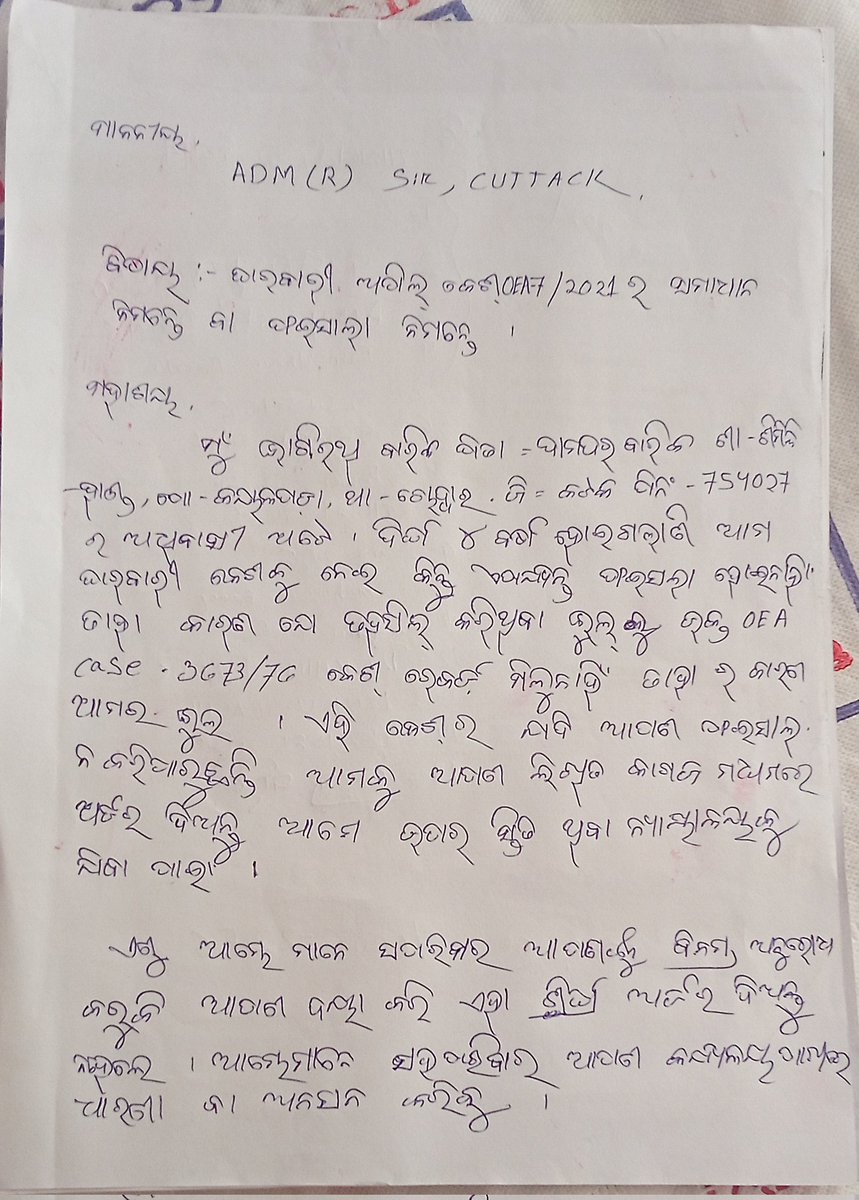 ମାନନୀୟ,
ADM(R) SIR, CUTTACK,
ବିଷୟ :- ଦାରବାରୀ ଅପିଲ୍ କେଶ୍ OEA7/2021 ର ସମାଧାନ
ନିମନ୍ତେ ବା ଫଇସାଲା ନିମନ୍ତେ ।
ମହାଶୟ,
ମୁଁ ଭାଗିରଥି ବାରିକ ପିତା = ଦାମଦର ବାରିକ ଶା -
ପୋ - କନ୍ଦଳପଡ଼ା, ଥା - ଚୌଦ୍ୱାର. ଜି = କଟକ ପିନଂ - 754027
ର ଅଧିବାସୀ ଅଟେ । ଦିର୍ଘ ୪ ବର୍ଷ ହୋଇଗଲାଣି ଆମ
ଦାରବାରୀ କେଶକୁ ନେଇ କିନ୍ତୁ ଏପର୍ଯ୍ୟନ୍ତ ଫଇସଲା ହୋଇନାହିଁ
ତାହା କାରଣ ଯେ ତହସିଲ୍ କରିଥିବା ଭୁଲ୍ କୁ ଉକ୍ତ OEA
case. 3673/76 କେଶ୍ ରେକର୍ଡ଼ ମିଳୁନାହିଁ ତାହା ର କାରଣ
ଆମର ଭୁଲ । ଏହି କେଶ୍ ର ଯଦି ଆପଣ ଫଇସାଲ୍
ନ କରିପାରୁଛନ୍ତି ଆମକୁ ଆପଣ ଲିଖିତ କାଗଜ ମଧ୍ୟମରେ
ଅର୍ଡର ଦିଅନ୍ତୁ ଆମେ ଉପର ସ୍ଥିତ ଥିବା ନ୍ୟାୟାଳୟକୁ
ଯିବା ପାଇଁ ।
ଏଣୁ ଆମ୍ଭେ ମାନେ ସପରିବାର ଆପଣଙ୍କୁ ବିନମ୍ର ଅନୁରୋଧ
କରୁଛୁକି ଆପଣ ଦୟା କରି ଏହା ଶୀଘ୍ର ଅର୍ଡର ଦିଅନ୍ତୁ
ନହେଲେ । ଆମ୍ଭେମାନେ ସହପରିବାର ଆପଣ କାର୍ଯ୍ୟାଳୟ
ଧାରଣା ବା ଅନସନ କରିବୁ ।